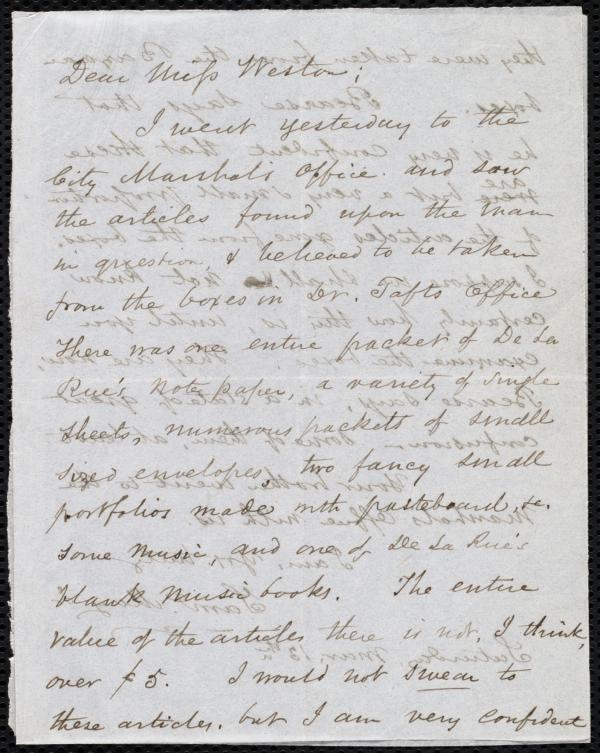 Dear Miss Weston;
I went yesterday to the
City Marshal's Office and saw
the articles found upon the man
in question, & believed to be taken
from the boxes in Dr. Tafts Office
There was one entire packet of De La
Rue's Note paper, a variety of single
sheets, numerous packets of small
sized envelopes, two fancy small
portfolios made with pasteboard, &c.
some music, and one of De La Rue's
blank music books. The entire
value of the articles there is not, I think,
over $5. I would not swear to
these articles, but I am very confident